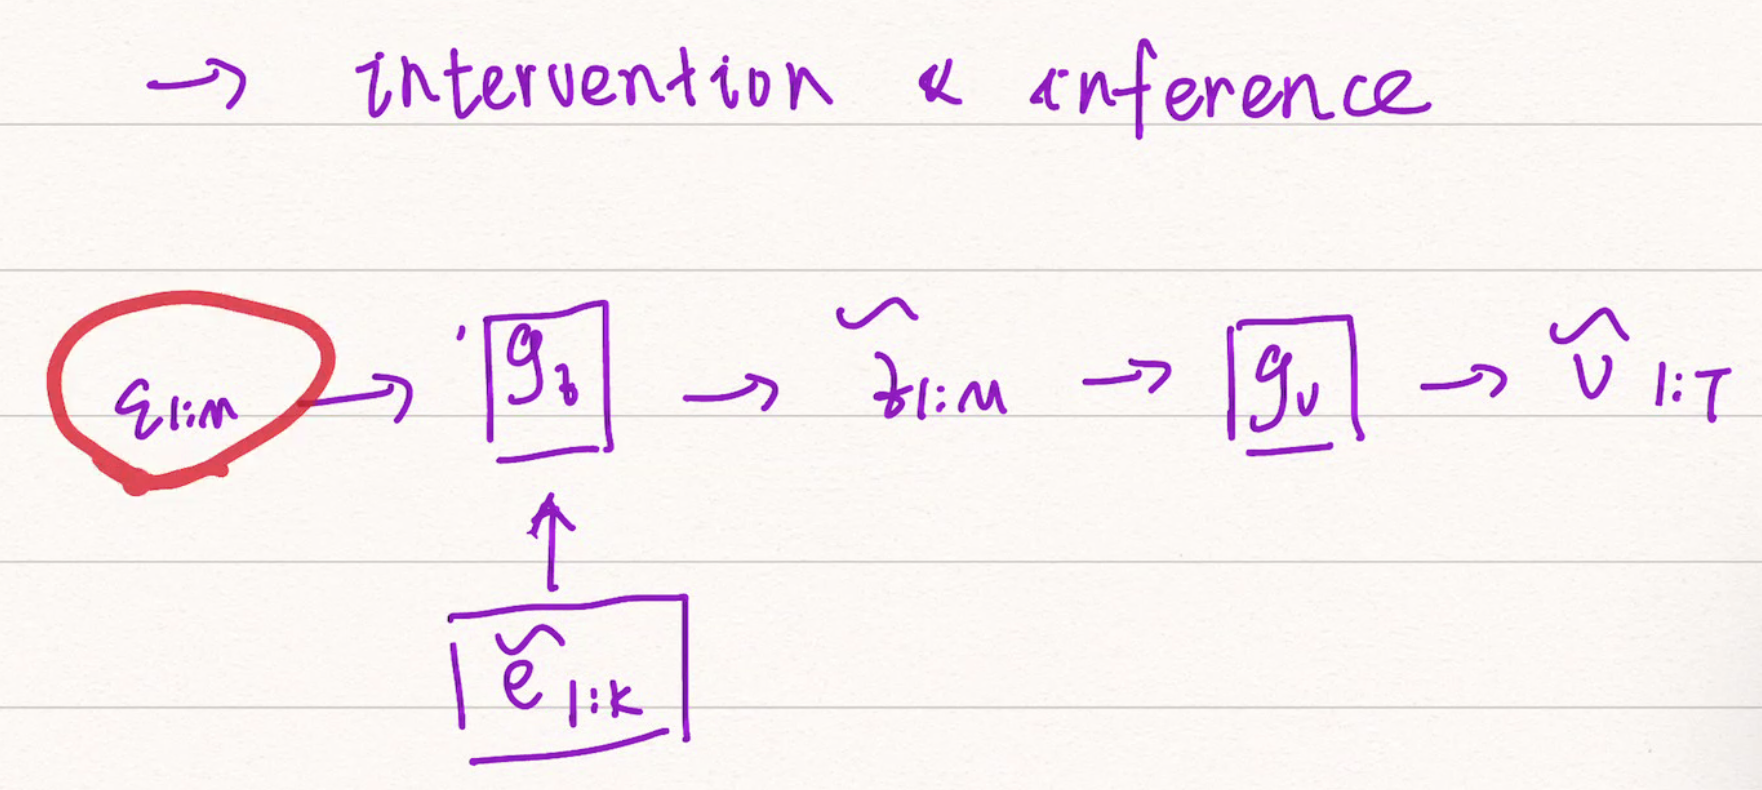 → intervention & inference
ε1:M → g_z → z̃1:M → g_v → ṽ1:T
↑
ẽ1:K